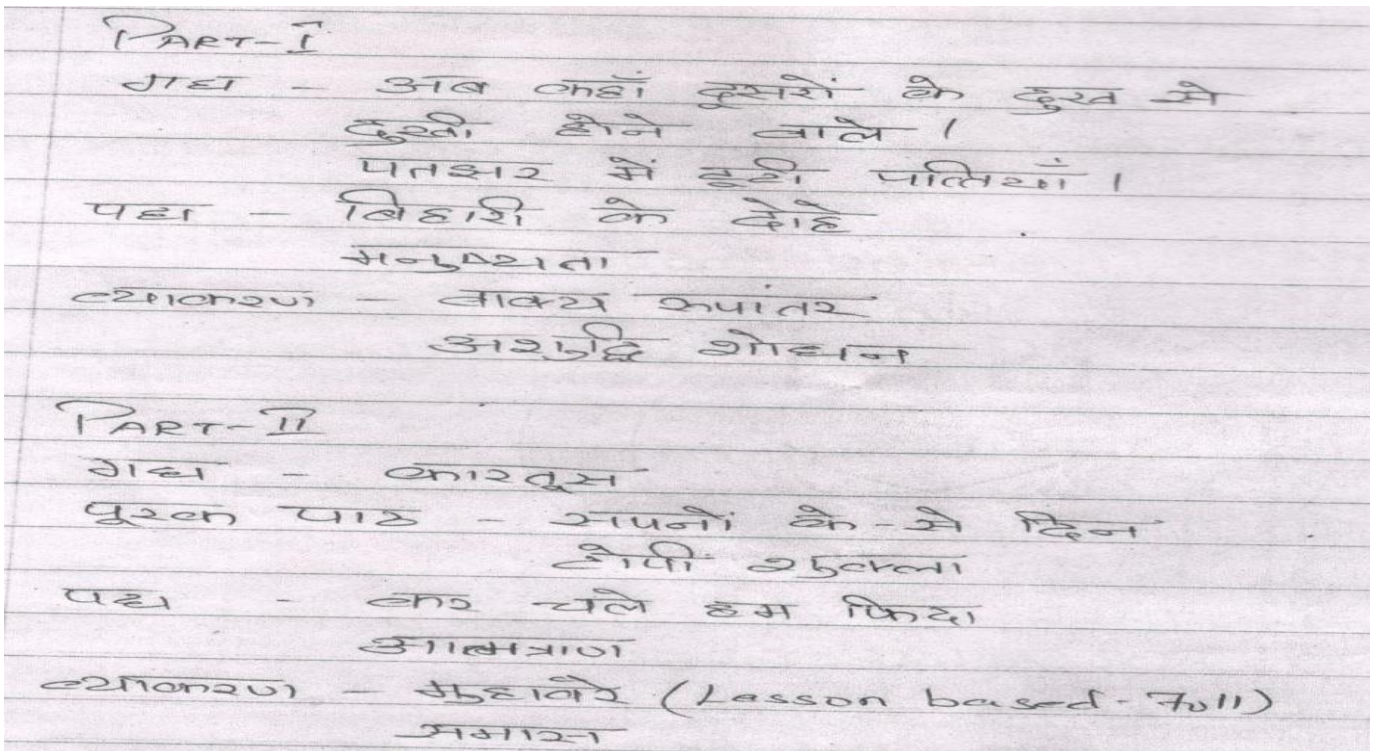 PART-I
गद्य - अब कहाँ दूसरों के दुख से
दुखी होने वाले ।
पतझर में टूटी पत्तियाँ ।
पद्य - बिहारी के दोहे
मनुष्यता
व्याकरण - वाक्य रूपांतर
अशुद्धि शोधन
PART-II
गद्य - कारतूस
पूरक पाठ - सपनों के-से दिन
टोपी शुक्ला
पद्य - कर चले हम फिदा
आत्मत्राण
व्याकरण - मुहावरे (Lesson based - Full)
समास